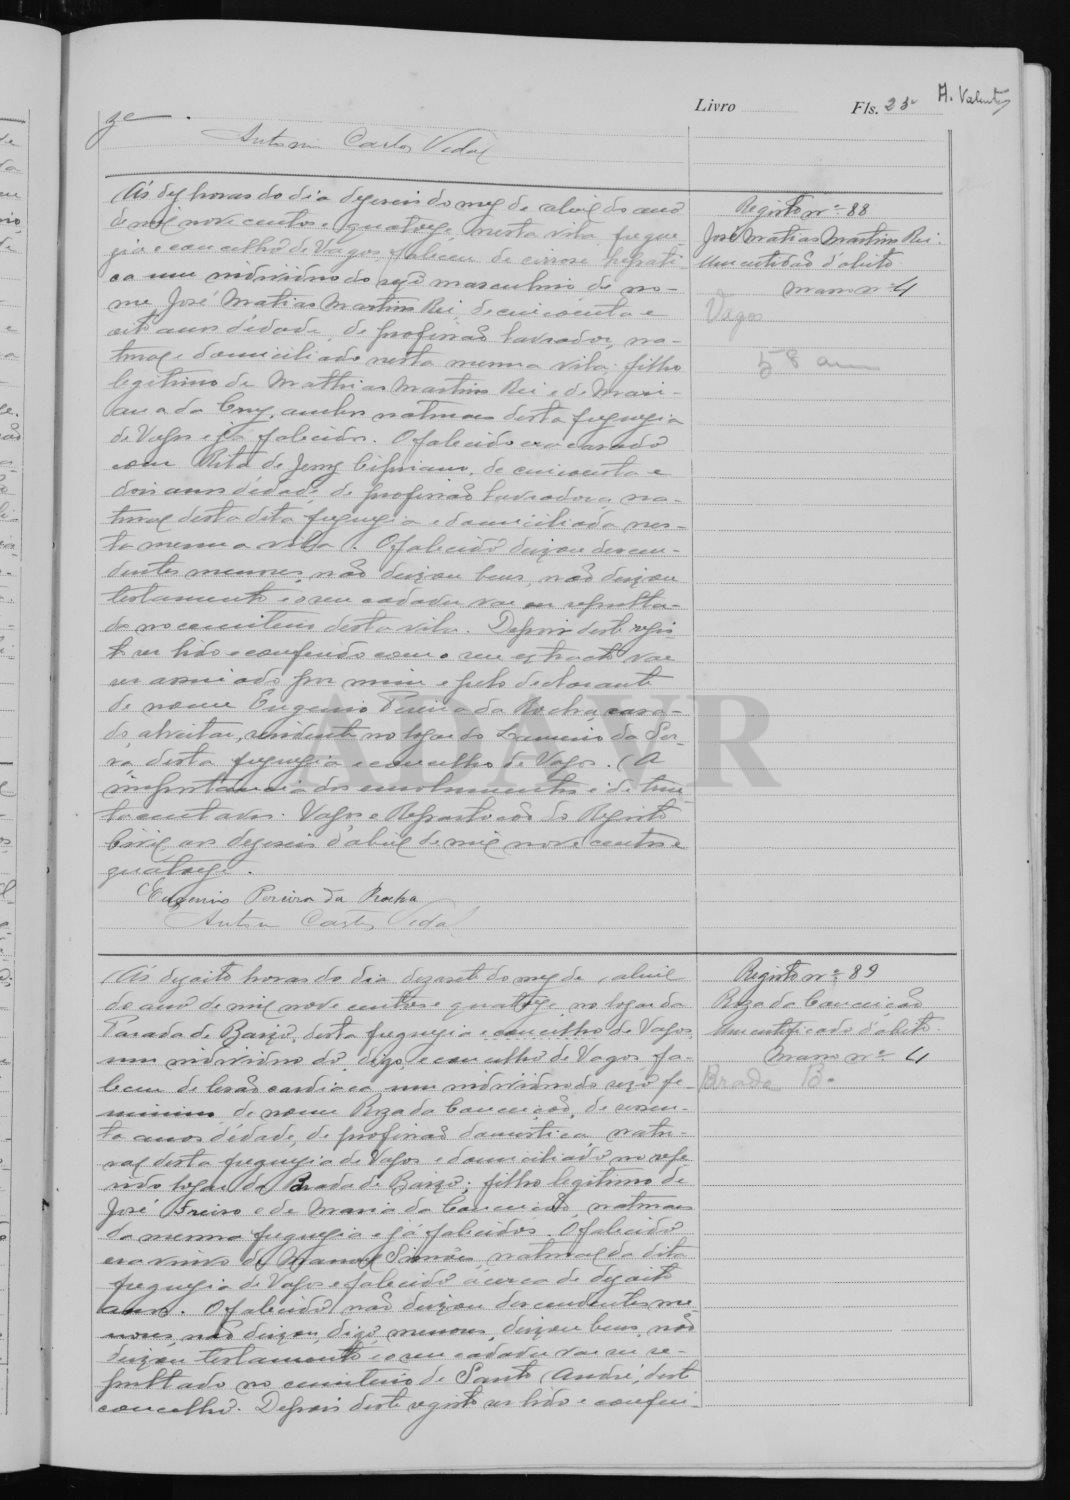 Livro Fls. 25 A. Valente
ze.
Antonio Carlos Vidal
Ás dez horas do dia dezeseis do mez de abril do ano
de mil nove centos e quatorze, nesta vila, fregue-
zia e concelho de Vagos faleceu de cirrose hepati-
ca um individuo do sexo masculino de no-
me José Matias Martins Rei, de cincoenta e
oito anos d'edade, de profissão lavrador, na-
tural e domiciliado nesta mesma vila: filho
legitimo de Mathias Martins Rei e de Mari-
ana da Cruz, ambos naturaes desta freguezia
de Vagos e já falecidos. O falecido era casado
com Rita de Jesus Cipriano, de cincoenta e
dois anos d'edade, de profissão lavradora na-
tural desta dita freguezia e domiciliada nes-
ta mesma vila. O falecido deixou descen-
dentes menores, não deixou bens, não deixou
testamento e o seu cadaver vae ser sepulta-
do no cemiterio desta vila. Depois deste regis-
to ser lido e conferido com o seu extracto vae
ser assinado por mim e pelo declarante
de nome Eugenio Pereira da Rocha, casa-
do, alveitar, residente no logar do Lameiro da Ser-
ra, desta freguezia e concelho de Vagos. (A
importancia dos emolumentos é de trin-
ta centavos. Vagos e Repartição do Registo
Civil aos dezeseis d'abril de mil nove centos e
quatorze.
Eugenio Pereira da Rocha
Antonio Carlos Vidal
Registo nº 88
José Matias Martins Rei.
Uma certidão d'obito.
Maço nº 4
Vagos
58 an
Ás dezoito horas do dia dezasete do mez de abril
do ano de mil nove centos e quatorze, no logar da
Parada de Baixo, desta freguezia e concelho de Vagos
um individuo do, digo, e concelho de Vagos fa-
leceu de lesão cardiaca um individuo do sexo fe-
minino de nome Roza da Conceição, de sessen-
ta anos d'edade, de profissão domestica, natu-
ral desta freguezia de Vagos e domiciliado no refe-
rido logar da Parada de Baixo; filho legitimo de
José Freire e de Maria da Conceição, naturaes
da mesma freguezia e já falecidos. O falecido
era viuvo de Manoel Simões, natural da dita
freguezia de Vagos e falecido ácerca de dezoito
anos. O falecido não deixou descendentes me-
nores, não deixou, digo menores, deixou bens, não
deixou testamento e o seu cadaver vae ser se-
pultado no cemiterio de Santo André, deste
concelho. Depois deste registo ser lido e conferi-
Registo nº 89
Roza da Conceição
Um certificado d'obito.
Maço nº 4
Parada B.
ADAVR